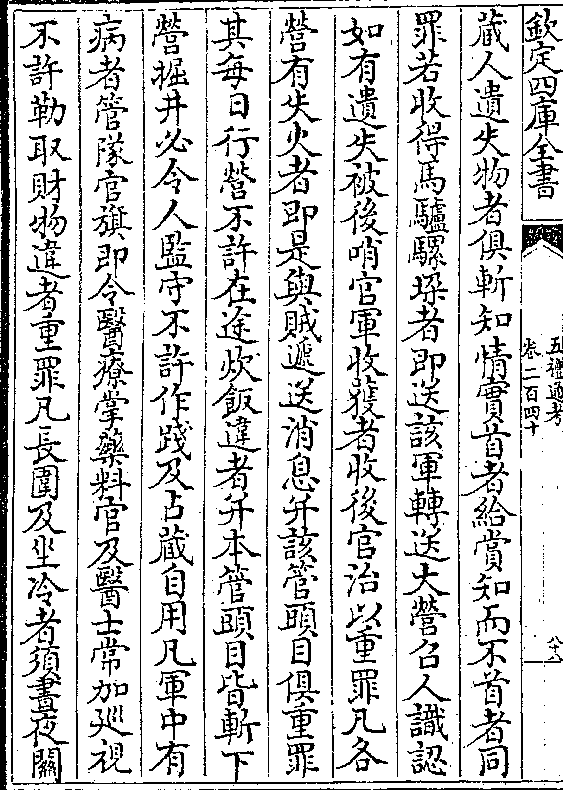 欽定四庫全書
五禮通考
卷二百四十
八十八
藏人遺失物者俱斬知情實首者給賞知而不首者同
罪若收得馬驢騾駝者即送該軍轉送大營召人識認
如有遺失被後哨官軍收獲者收後官治以重罪凡各
營有失火者即是與賊遞送消息并該管頭目俱重罪
其每日行營不許在途炊飯違者并本管頭目皆斬下
營掘井必令人監守不許作踐及占藏自用凡軍中有
病者管隊官旗即令醫療掌藥料官及醫士常加廵視
不許勒取財物違者重罪凡長圍及坐冷者須晝夜關